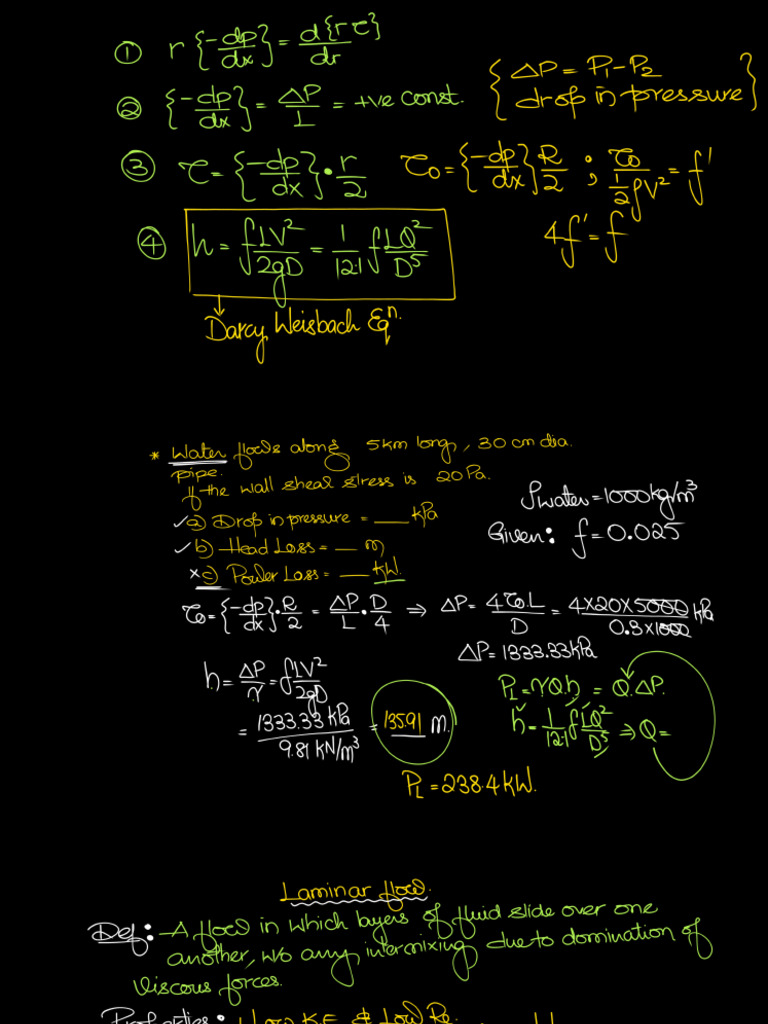 ① r{-dp/dx} = d{rτ}/dr
② {-dp/dx} = ΔP/L = +ve const.
{ΔP = P1-P2
drop in pressure}
③ τ = {-dp/dx}·r/2
τ0 = {-dp/dx}R/2 ; τ0/(1/2 ρV²) = f'
4f' = f
④ h = fLV²/2gD = 1/12.1 fLQ²/D⁵
Darcy Weisbach Eqn.
* Water flows along 5km long, 30 cm dia.
pipe.
If the wall shear stress is 20Pa.
✓a) Drop in pressure = __ kPa
✓b) Head Loss = __ m
×c) Power Loss = __ kW.
ρwater = 1000kg/m³
Given: f = 0.025
τ0 = {-dp/dx}·R/2 = ΔP/L·D/4 ⇒ ΔP = 4τ0.L/D = 4×20×5000/0.3×1000 kPa
ΔP = 1333.33kPa
h = ΔP/γ = fLV²/2gD
= 1333.33 kPa/9.81 kN/m³ = 135.91 m.
PL = γQ.h = Q.ΔP.
h = 1/12.1 fLQ²/D⁵ ⇒ Q =
PL = 238.4kW.
Laminar flow.
Def: - A flow in which layers of fluid slide over one
another, w/o any intermixing due to domination of
viscous forces.
Properties: Low K.E & Low Re.